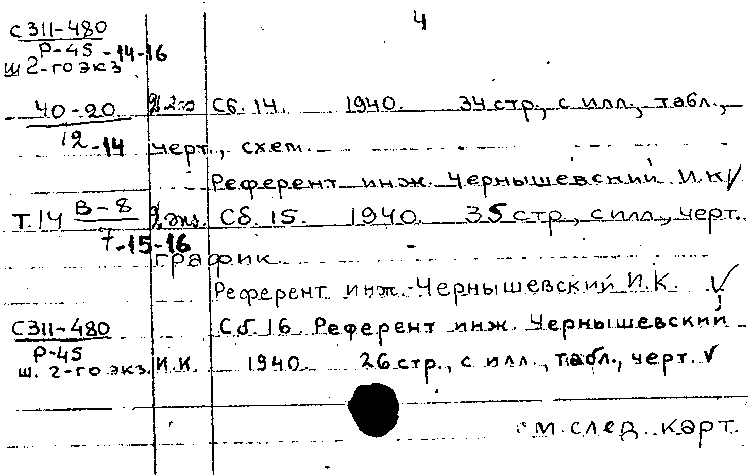 4
С311-480
Р-45 -14-16
ш 2-го экз
40-20 Сб. 14. 1940. 34 стр., с илл., табл.,
12-14 черт., схем.
Референт инж. Чернышевский И.К
Т. 14 В-8 экз. Сб. 15. 1940. 35 стр., с илл., черт.
7-15-16
график
Референт инж. Чернышевский И.К.
С311-480 Сб. 16 Референт инж. Чернышевский
Р-45
ш. 2-го экз. И.К. 1940. 26 стр., с илл., табл., черт.
м. след. карт.